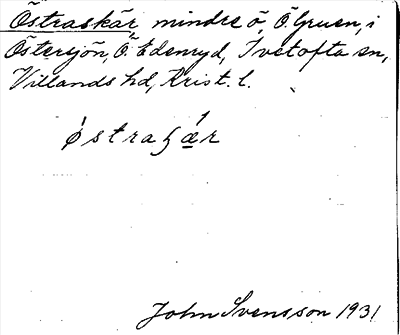 Östraskär, mindre ö, Ö. Gruen, i
Östersjön, Ö. Edenryd, Ivetofta sn,
Villands hd, Krist. l.
østraʃær
John Svensson 1931